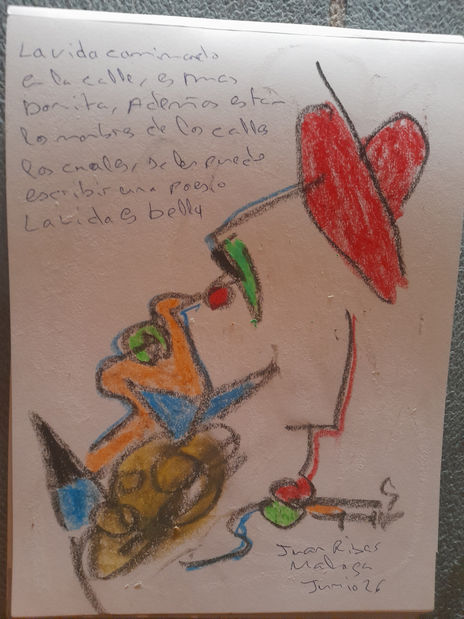 La vida caminando
en la calle, es mas
bonita, Ademas estan
los nombres de las calles
los cuales, se les puede
escribir una poesia
La vida es bella
Juan Ribas
Malaga
Junio 26